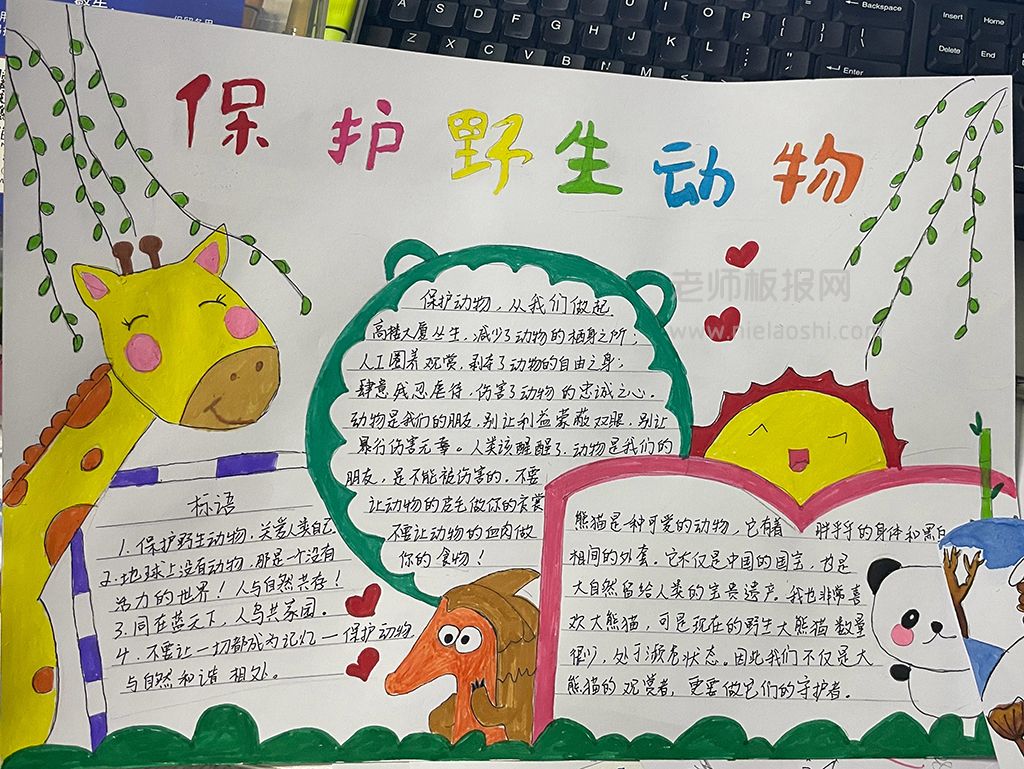 保护野生动物
保护动物，从我们做起
高楼大厦丛生，减少了动物的栖身之所；
人工圈养观赏，剥夺了动物的自由之身；
肆意残忍虐待，伤害了动物的忠诚之心。
动物是我们的朋友，别让利益蒙蔽双眼，别让
暴行伤害无辜。人类该醒醒了，动物是我们的
朋友，是不能被伤害的，不要
让动物的皮毛做你的衣裳
不要让动物的血肉做
你的食物！
标语
1. 保护野生动物，关爱人类自己
2. 地球上没有动物，那是一个没有
活力的世界！人与自然共存！
3. 同在蓝天下，人鸟共家园。
4. 不要让一切都成为记忆一保护动物
与自然和谐相处。
熊猫是一种可爱的动物，它有着 胖乎乎的身体和黑白
相间的外套。它不仅是中国的国宝，也是
大自然留给人类的宝贵遗产。我也非常喜
欢大熊猫，可是现在的野生大熊猫数量
很少，处于濒危状态。因此我们不仅是大
熊猫的观赏者，更要做它们的守护者。
老师板报网
www.nielaoshi.com
Backspace
Insert
Home
Delete
End
Enter
A S D F G H J K L
Z X C V B N M
U I O P